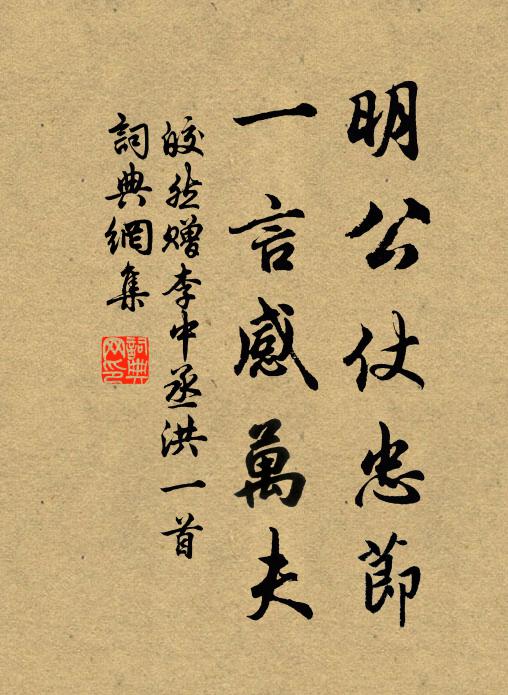 明公仗忠節
一言感萬夫
皎然贈李中丞洪一首
詞典網集
詞典網印